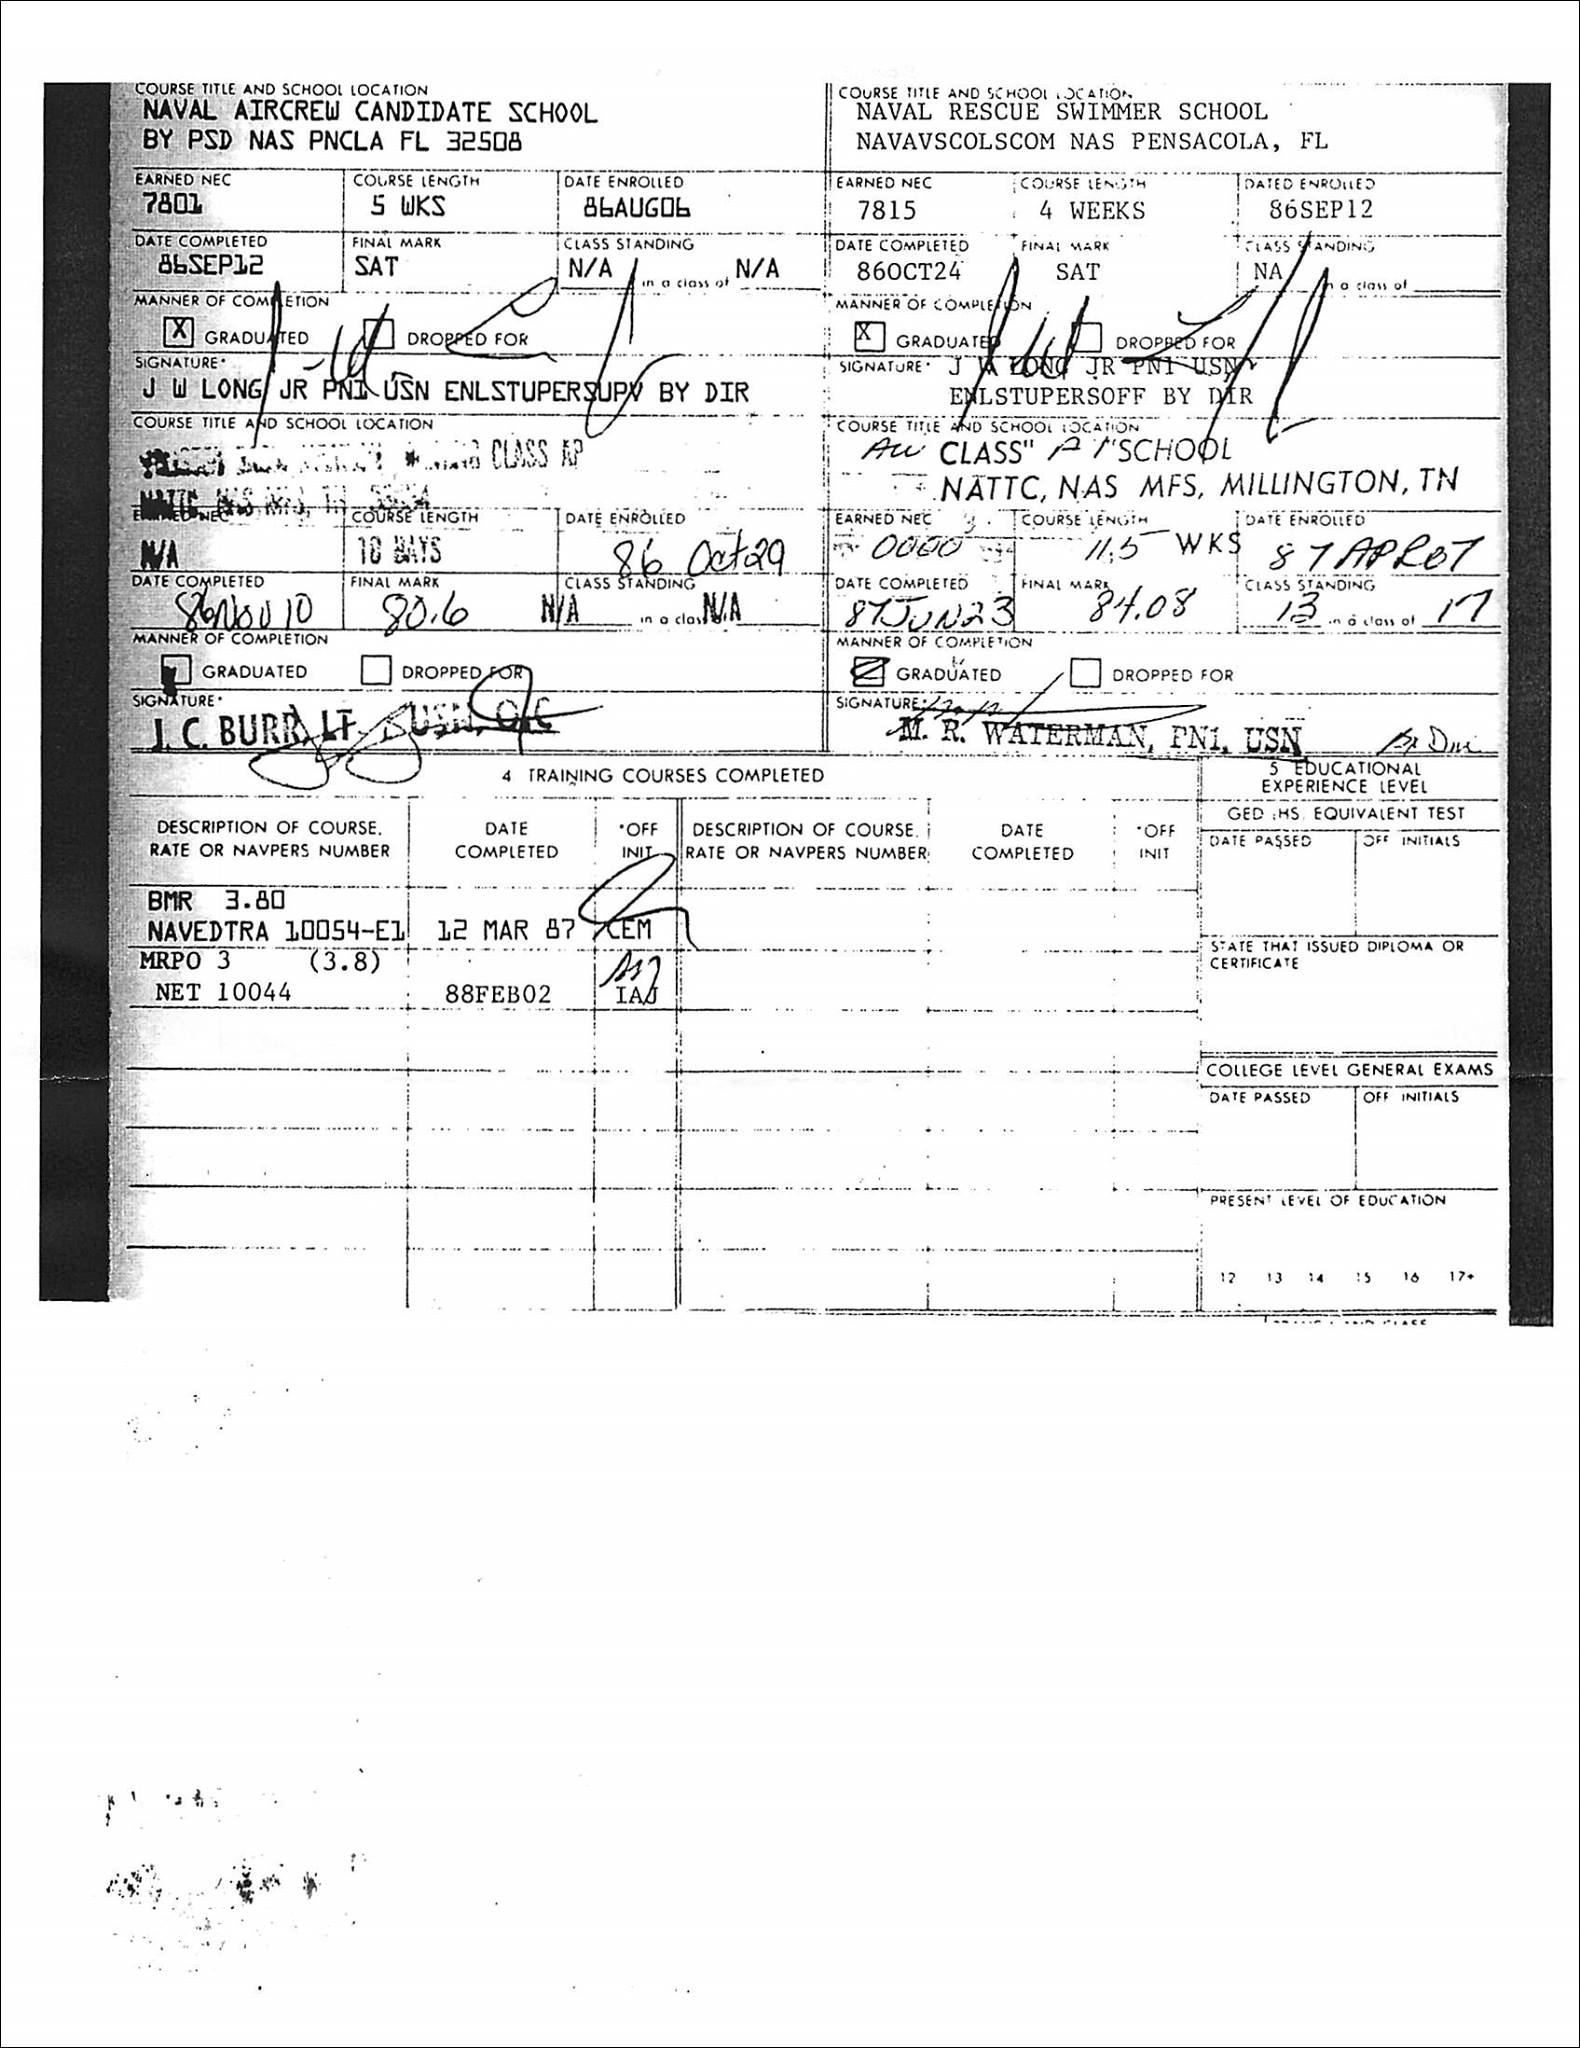 COURSE TITLE AND SCHOOL LOCATION
NAVAL AIRCREW CANDIDATE SCHOOL
BY PSD NAS PNCLA FL 32508
EARNED NEC COURSE LENGTH DATE ENROLLED
7801 5 WKS 86AUG06
DATE COMPLETED FINAL MARK CLASS STANDING
86SEP12 SAT N/A in a class of N/A
MANNER OF COMPLETION
X GRADUATED DROPPED FOR
SIGNATURE*
J W LONG JR PN1 USN ENLSTUPERSUPV BY DIR
COURSE TITLE AND SCHOOL LOCATION
NAVAL RESCUE SWIMMER SCHOOL
NAVAVSCOLSCOM NAS PENSACOLA, FL
EARNED NEC COURSE LENGTH DATED ENROLLED
7815 4 WEEKS 86SEP12
DATE COMPLETED FINAL MARK CLASS STANDING
86OCT24 SAT NA in a class of
MANNER OF COMPLETION
X GRADUATED DROPPED FOR
SIGNATURE* J W LONG JR PN1 USN
ENLSTUPERSOFF BY DIR
COURSE TITLE AND SCHOOL LOCATION
CLASS AP
NATTC, NAS MFS, TN
EARNED NEC COURSE LENGTH DATE ENROLLED
N/A 10 DAYS 86 Oct 29
DATE COMPLETED FINAL MARK CLASS STANDING
86NOV10 80.6 N/A in a class N/A
MANNER OF COMPLETION
GRADUATED DROPPED FOR
SIGNATURE*
J. C. BURR, LT. USN, OIC
COURSE TITLE AND SCHOOL LOCATION
AW CLASS "A1" SCHOOL
NATTC, NAS MFS, MILLINGTON, TN
EARNED NEC COURSE LENGTH DATE ENROLLED
0000 11.5 WKS 87APR07
DATE COMPLETED FINAL MARK CLASS STANDING
87JUN23 84.08 13 in a class of 17
MANNER OF COMPLETION
GRADUATED DROPPED FOR
SIGNATURE*
M. R. WATERMAN, PN1, USN By Dir
4 TRAINING COURSES COMPLETED
DESCRIPTION OF COURSE, DATE *OFF DESCRIPTION OF COURSE, DATE *OFF
RATE OR NAVPERS NUMBER COMPLETED INIT RATE OR NAVPERS NUMBER COMPLETED INIT
BMR 3.80
NAVEDTRA 10054-E1 12 MAR 87 CEM
MRPO 3 (3.8)
NET 10044 88FEB02 IAJ
5 EDUCATIONAL
EXPERIENCE LEVEL
GED (HS) EQUIVALENT TEST
DATE PASSED OFF INITIALS
STATE THAT ISSUED DIPLOMA OR
CERTIFICATE
COLLEGE LEVEL GENERAL EXAMS
DATE PASSED OFF INITIALS
PRESENT LEVEL OF EDUCATION
12 13 14 15 16 17+